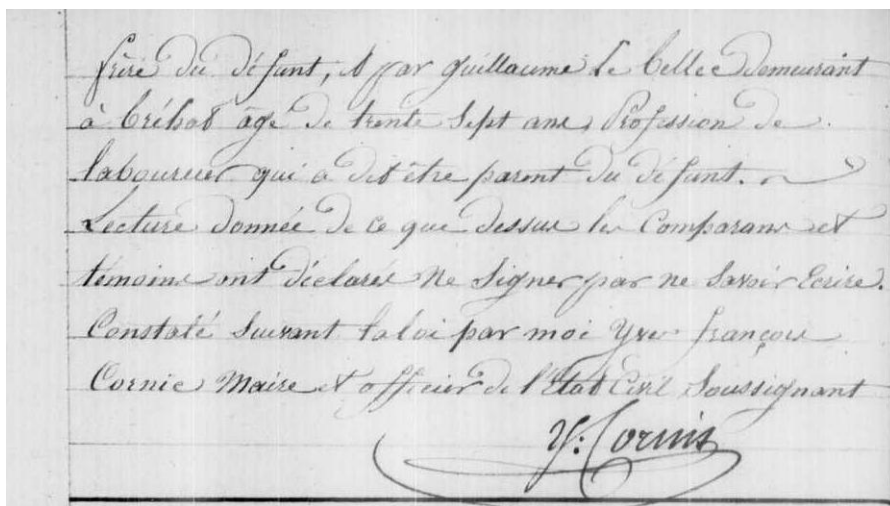 frère du défunt, et par Guillaume Le Bellec Demeurant
à Bréhat âgé de trente Sept ans, Profession de
laboureur qui a dit être parent du défunt.
Lecture donnée de ce que dessus les Comparans et
témoins ont déclarés ne Signer par ne Savoir Ecrire.
Constaté Suivant la loi par moi Yves françois
Cornic Maire et officier de l'Etat Civil Soussignant
Y: Cornic